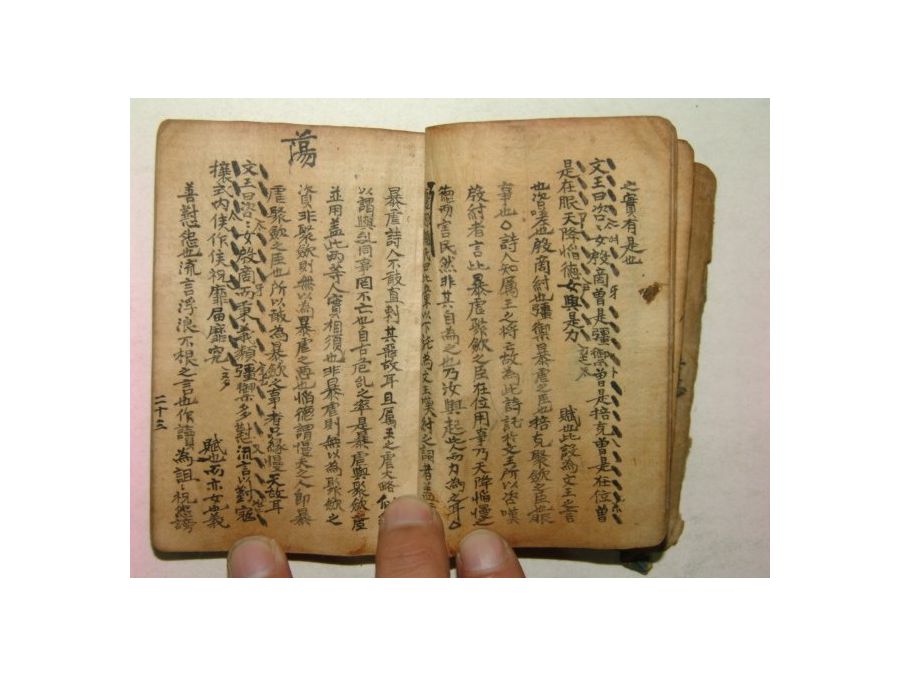 之實有是也
文王曰咨咨女殷商曾是彊禦曾是掊克曾是在位曾
是在服天降慆德女興是力 賦也此設為文王之言
也咨嗟也殷商紂也彊禦暴虐之臣也掊克聚斂之臣也服
事也○詩人知厲王之將亡故為此詩託於文王所以咨嗟
殷紂者言此暴虐聚斂之臣在位用事乃天降慆慢之
德而害民然非其自為之也乃汝興起此而力為之耳○
以下託為文王嘆紂之詞者盖
暴虐詩人不敢直刺其惡故耳且厲王之虐大略
以謂與亂同事罔不亡也自古危乱之率是暴虐與聚斂臣
並用盖此兩等人實相須也非暴虐則無以為聚斂之
資非聚斂則無以為暴虐之也慆德謂慢天之人即暴
虐聚斂之臣也所以敢為暴斂之事者只緣慢天故耳
蕩
文王曰咨咨女殷商而秉義類彊禦多懟流言以對寇
攘式內侯作侯祝靡届靡究 賦也而亦女也義
善懟怨也流言浮浪不根之言也作讀為詛詛祝怨謗
二十三